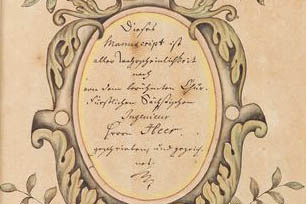 Dieses
Manuscript ist
aller Wahrscheinlichkeit
nach
von dem berühmten Chur-
Fürstlichen Sächsischen
Ingenieur
Herrn Heer
geschrieben, und gezeich-
net.